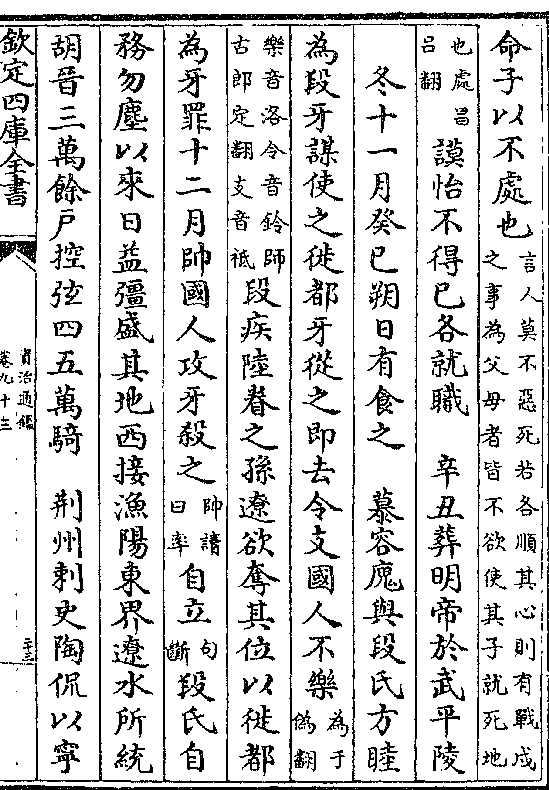 命子以不處也言人莫不惡死若各順其心則有戰戍之事為父母者皆不欲使其子就死地
也處昌呂翻謨怡不得已各就職　辛丑葬明帝於武平陵
冬十一月癸巳朔日有食之　慕容廆與段氏方睦
為段牙謀使之徙都牙從之即去令支國人不樂為于偽翻
樂音洛令音鈴師古郎定翻支音祗段疾陸眷之孫遼欲奪其位以徙都
為牙罪十二月帥國人攻牙殺之帥讀曰率自立句斷段氏自
務勿塵以來日益彊盛其地西接漁陽東界遼水所統
胡晉三萬餘戶控弦四五萬騎　荆州刺史陶侃以寧
欽定四庫全書
資治通鑑
卷九十三
二十三